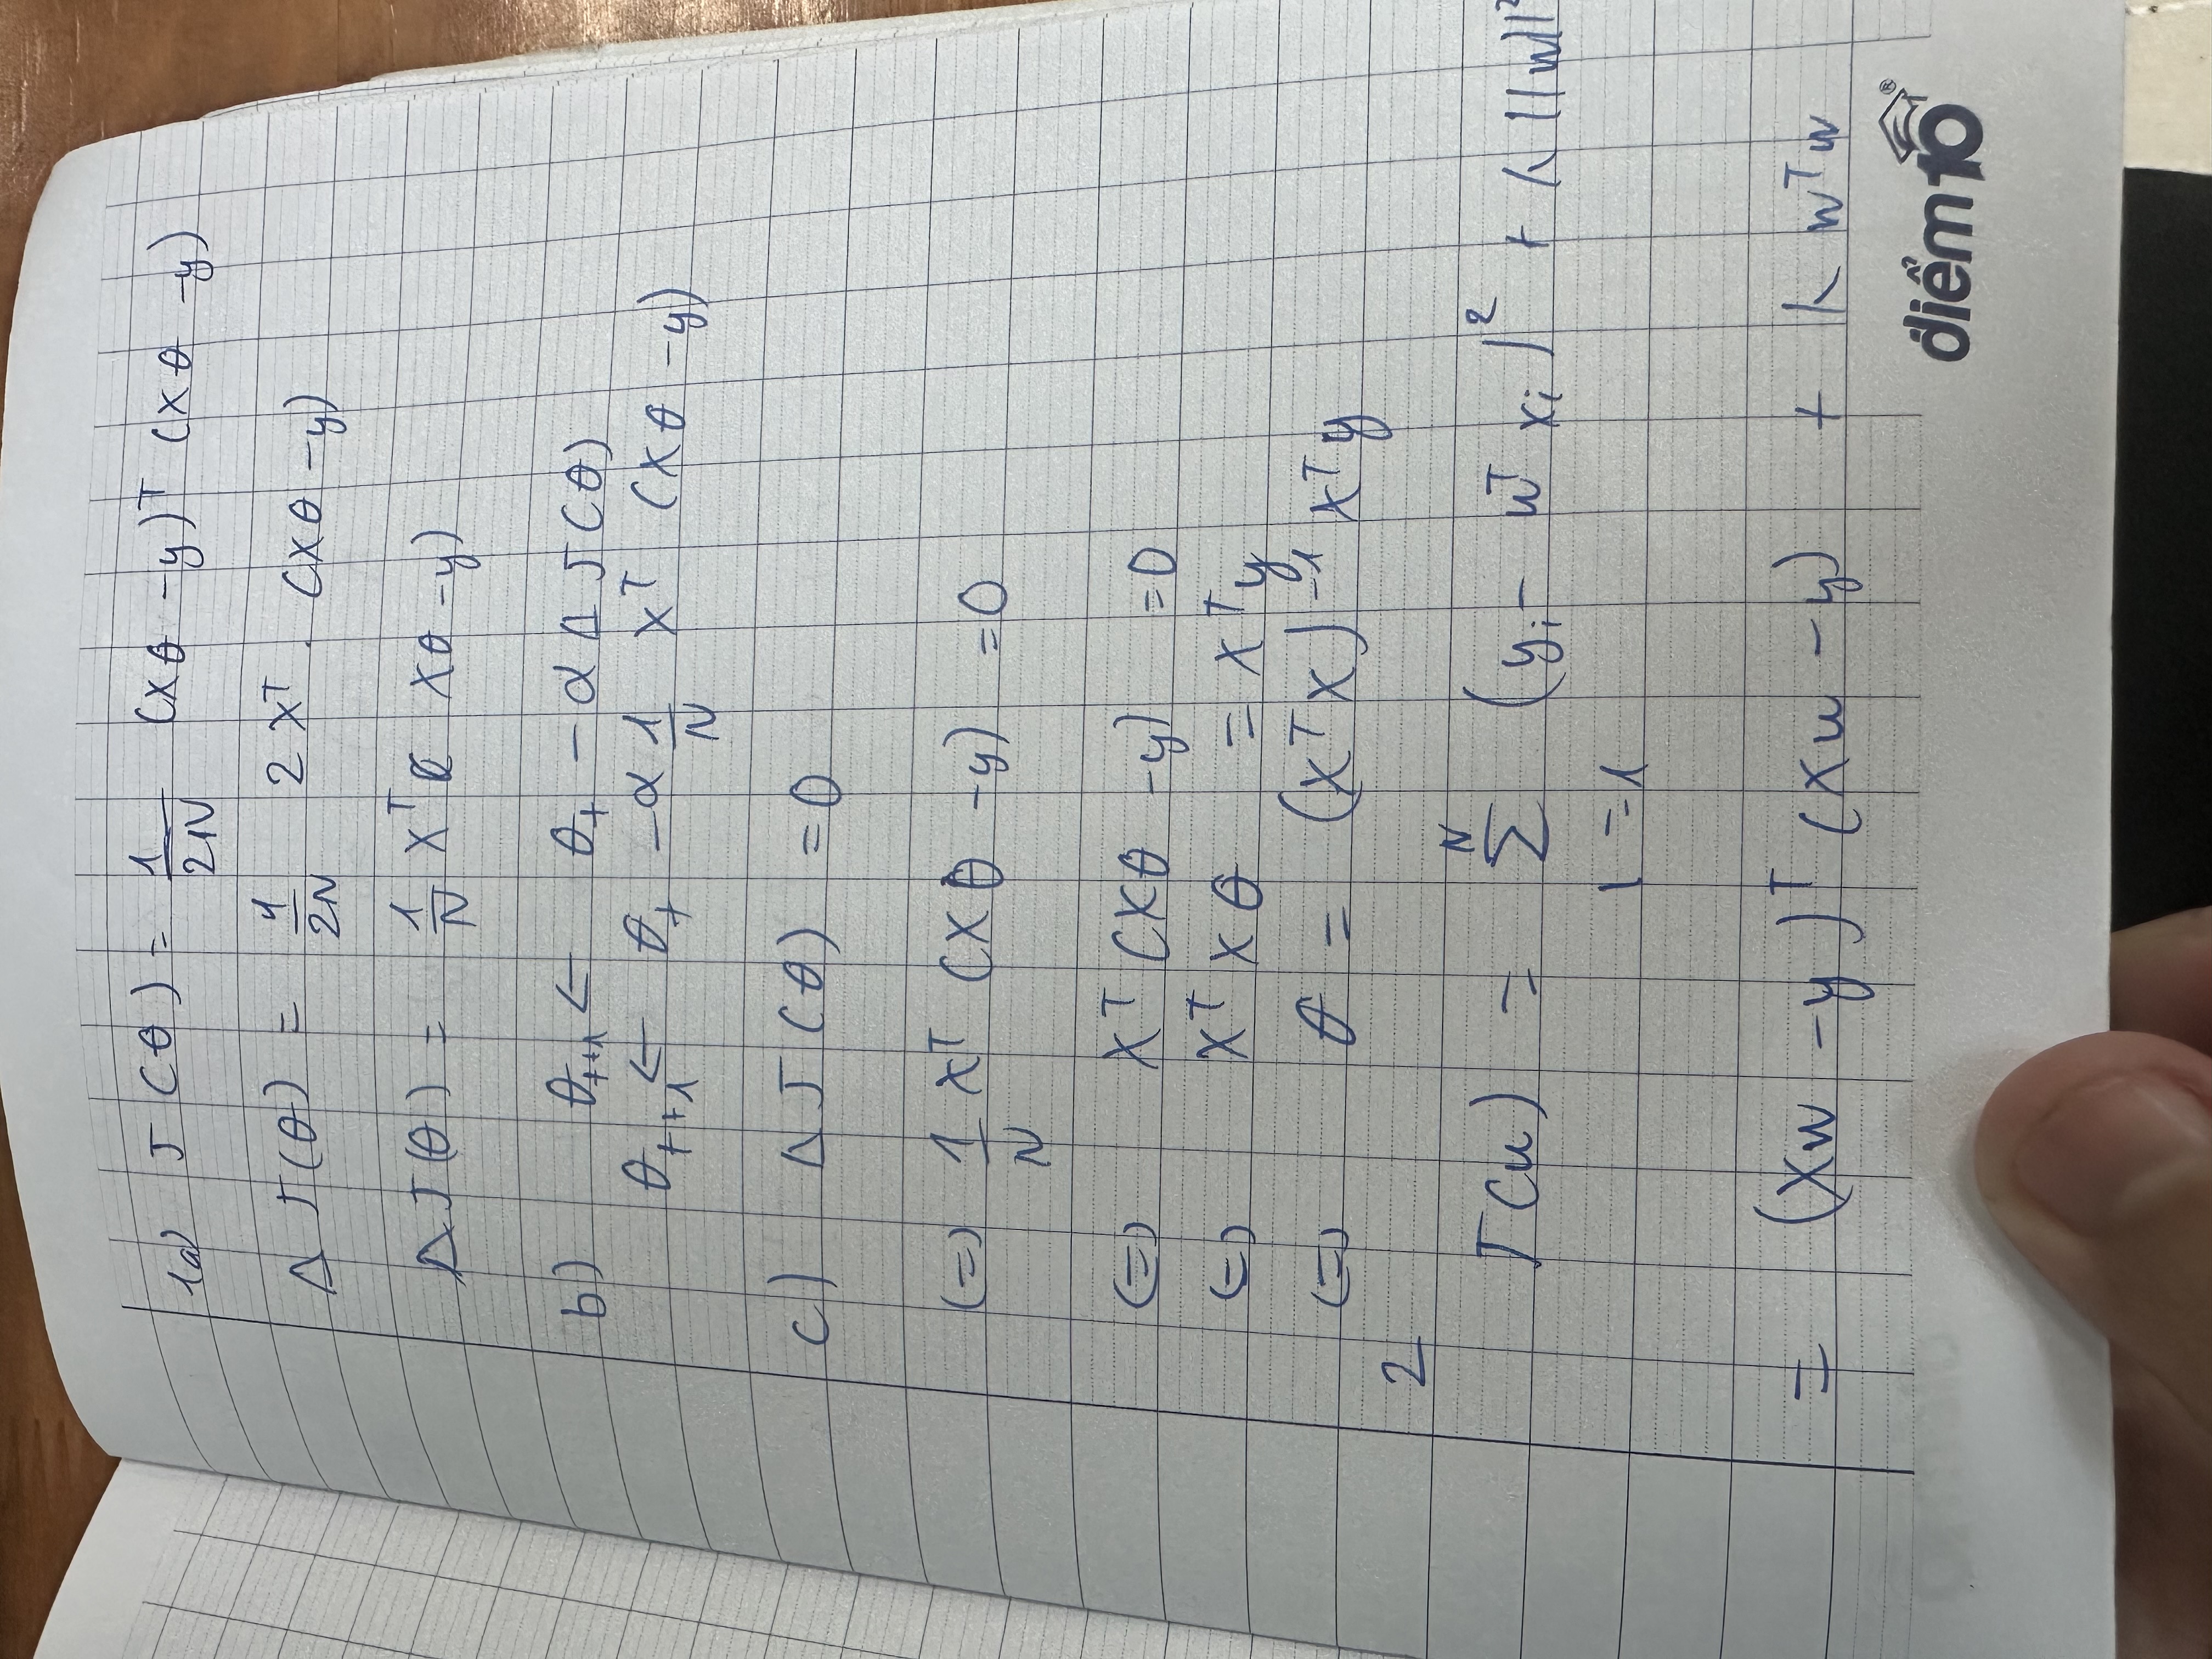 1a) J(θ) = 1/2N (Xθ - y)ᵀ (Xθ - y)
Δ J(θ) = 1/2N 2 Xᵀ . (Xθ - y)
Δ J(θ) = 1/N Xᵀ ( Xθ - y)
b) θₜ₊₁ ← θₜ - α Δ J(θ)
θₜ₊₁ ← θₜ - α 1/N Xᵀ (Xθ - y)
c) Δ J(θ) = 0
(=) 1/N Xᵀ (Xθ - y) = 0
(=) Xᵀ (Xθ - y) = 0
(=) Xᵀ X θ = Xᵀ y
(=) θ = (Xᵀ X)⁻¹ Xᵀ y
2
J(w) = Σ_{i=1}^{N} (yᵢ - wᵀ xᵢ)² + λ ||w||²
= (Xw - y)ᵀ (Xw - y) + λ wᵀw
điểm10®